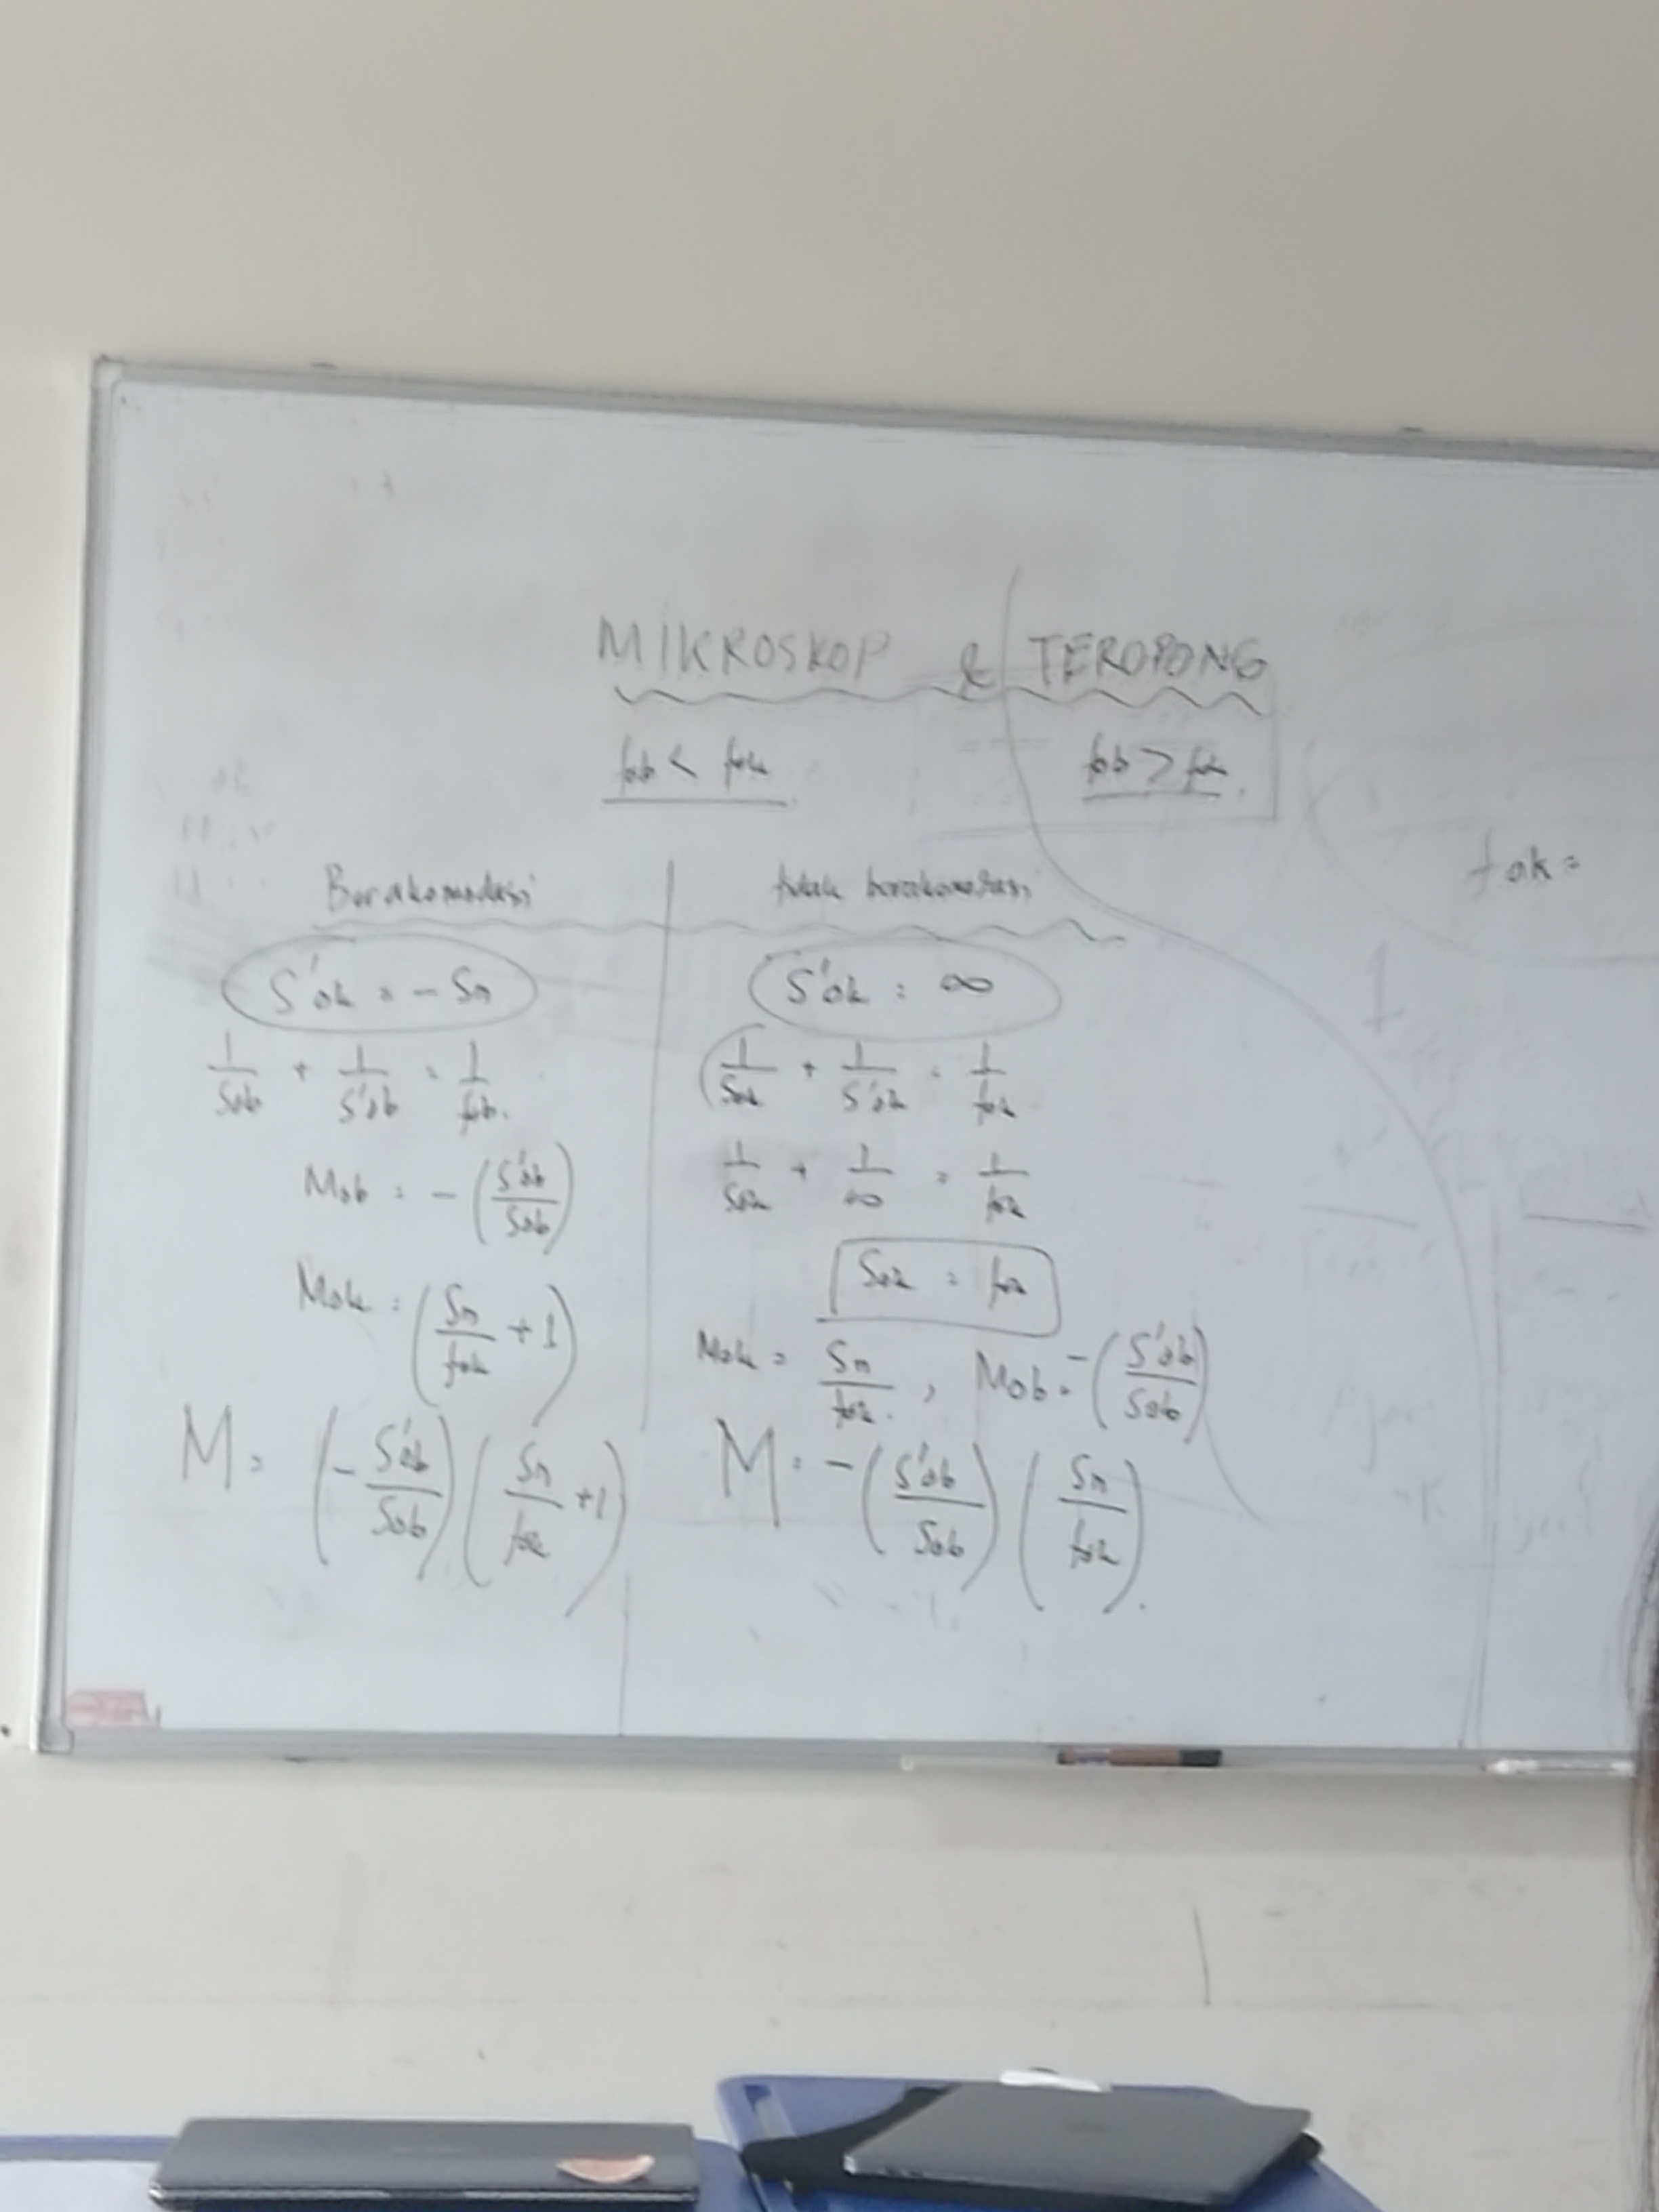 MIKROSKOP & TEROPONG
fob < fok
fob > fok.
fok =
Berakomodasi
S'ok = - Sn
1/Sob + 1/S'ob = 1/fob.
Mob = - (S'ob/Sob)
Mok = (Sn/fok + 1)
M = (- S'ob/Sob) (Sn/fok + 1)
tidak berakomodasi
S'ok = ∞
1/Sok + 1/S'ok = 1/fok
1/Sok + 1/∞ = 1/fok
Sok = fok
Mok = Sn/fok., Mob = - (S'ob/Sob)
M = - (S'ob/Sob) (Sn/fok).